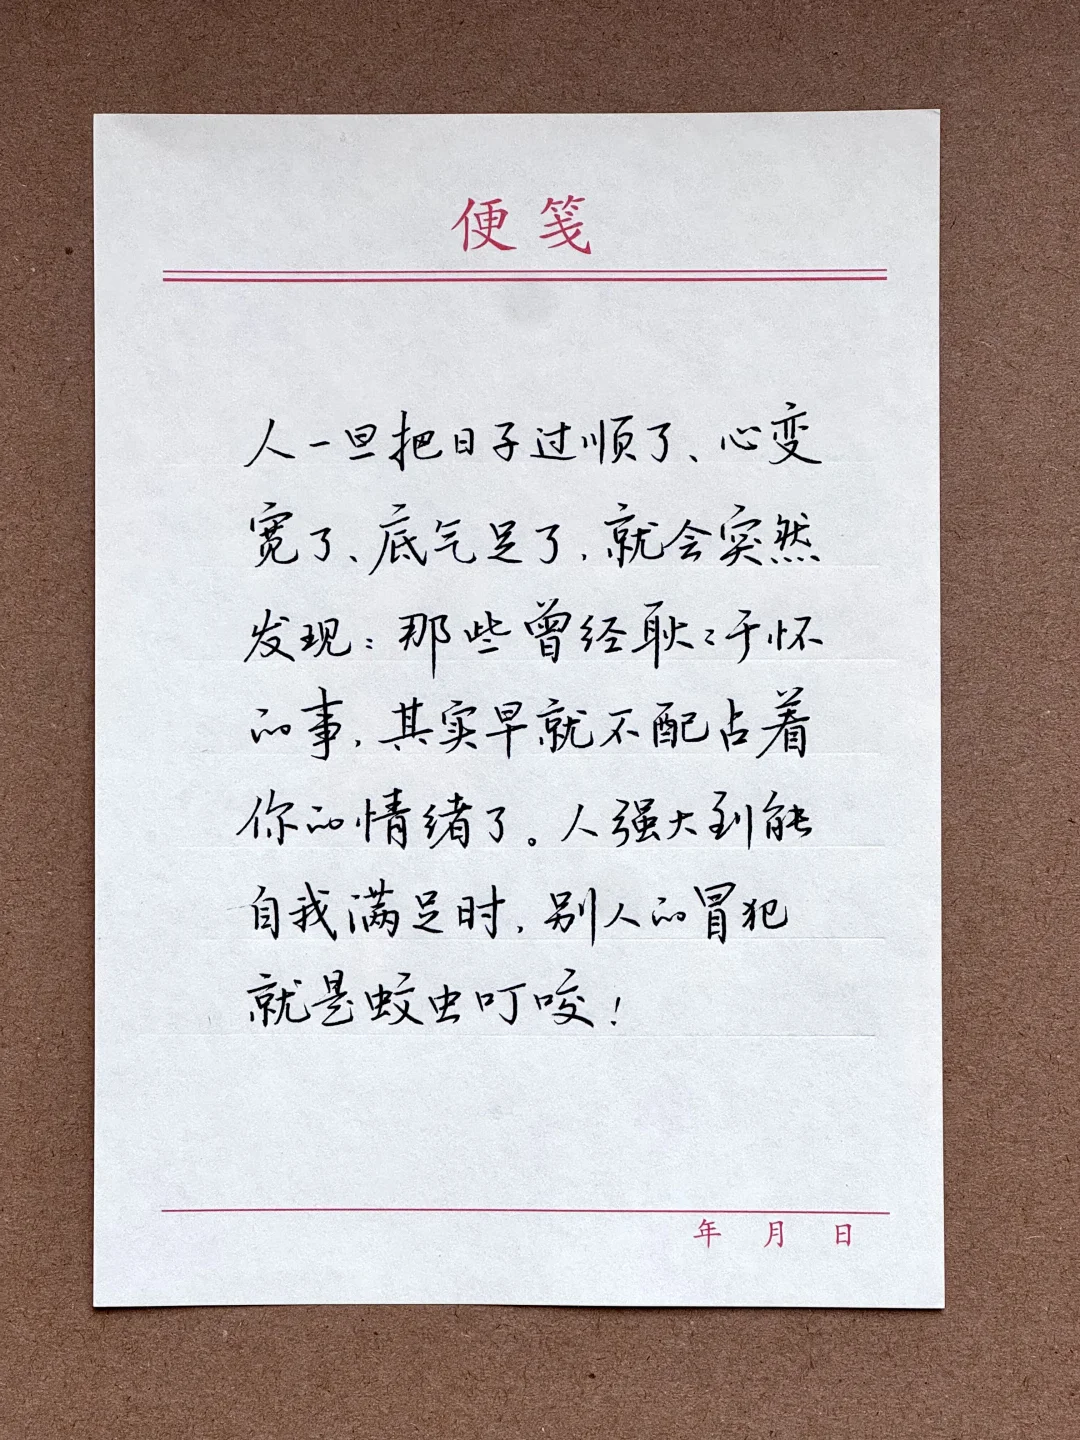 便笺
人一旦把日子过顺了、心变
宽了、底气足了，就会突然
发现：那些曾经耿々于怀
的事，其实早就不配占着
你的情绪了。人强大到能
自我满足时，别人的冒犯
就是蚊虫叮咬！
年 月 日